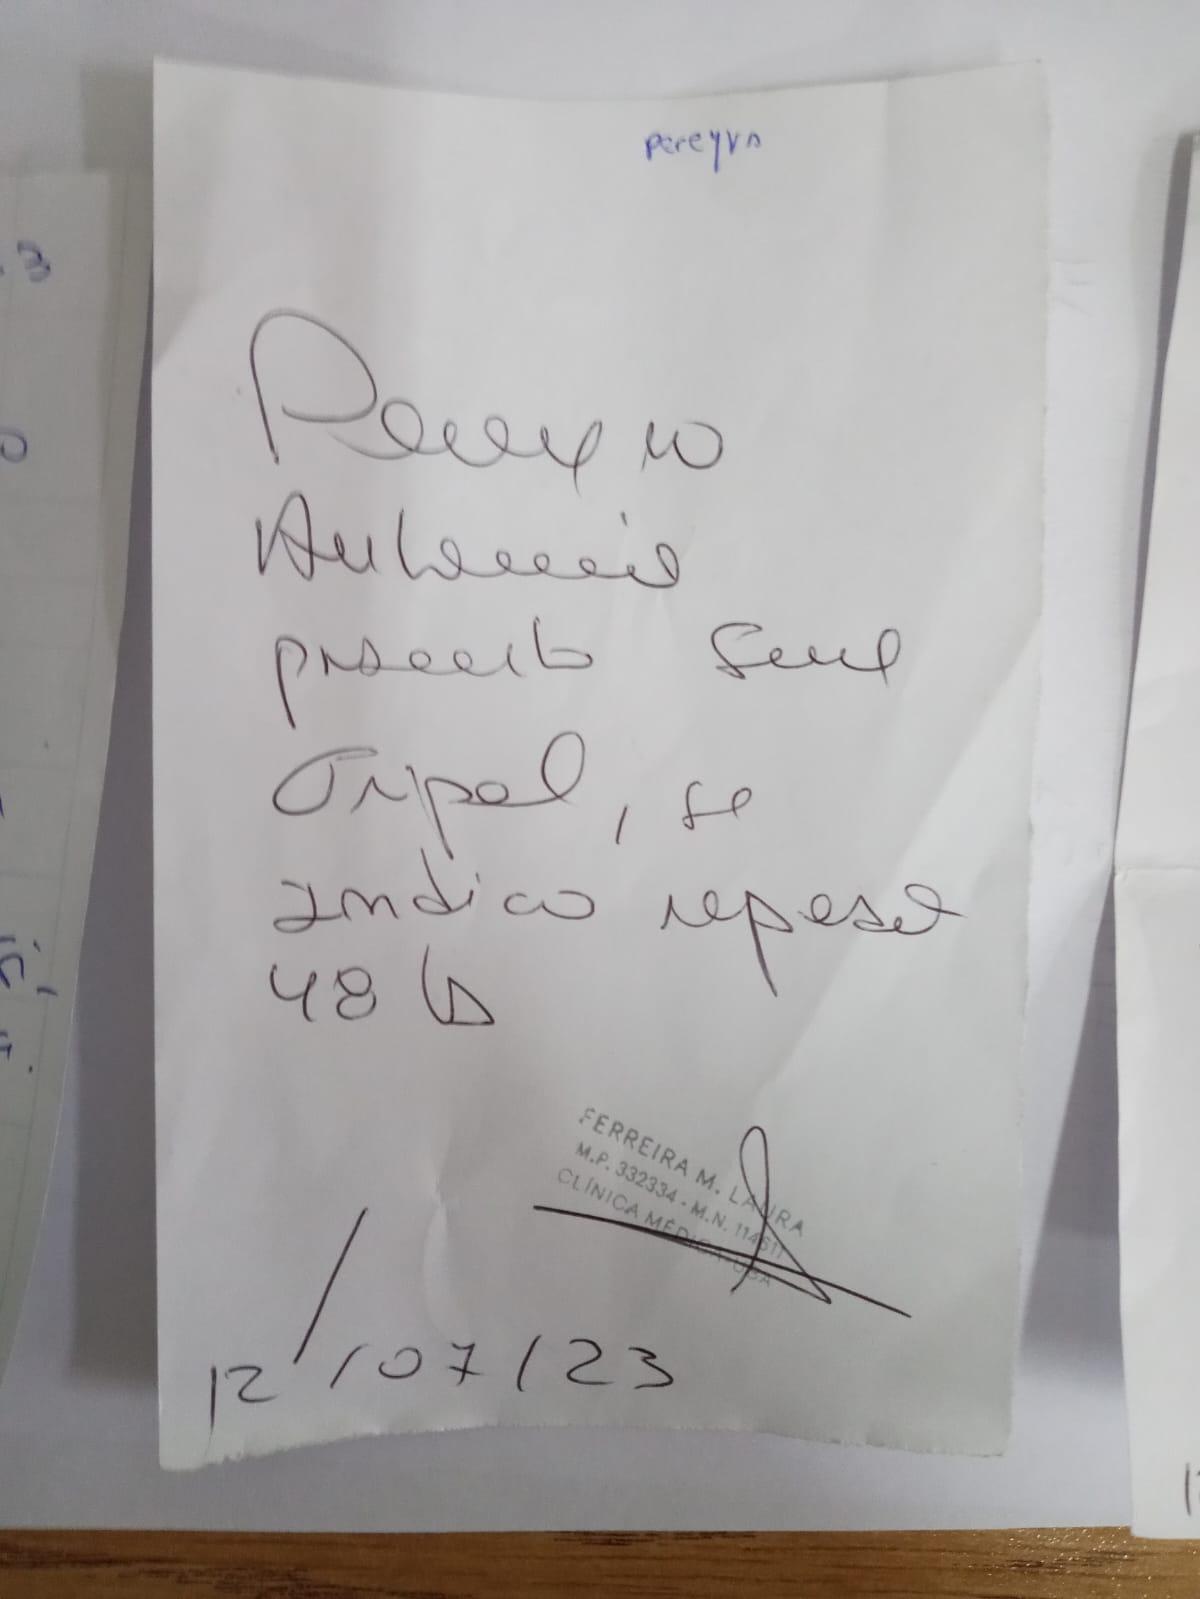 Pereyra
Pereyra
Antonio
presenta Sme
Gripal, se
indica reposo
48 hs
FERREIRA M. LAURA
M.P. 332334 - M.N. 114511
CLÍNICA MÉDICA - UBA
12/07/23